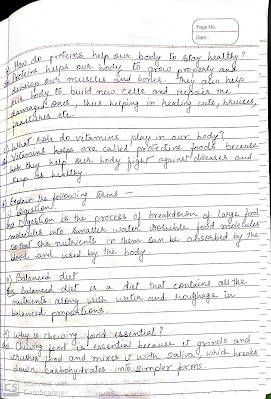 Page No.
Date :
Q) How do proteins help our body to stay healthy?
Proteins helps our body to grow properly and
develop our muscles and bones. They also help
our body to build new cells and repair the
damaged ones, thus helping in healing cuts, bruises,
fractures etc.
What role do vitamins play in our body?
Vitamins are called protective foods because
they help our body fight against diseases and
keep us healthy.
Explain the following terms —
Digestion
Digestion is the process of breakdown of large food
molecules into smaller water soluble food molecules
so that the nutrients in them can be absorbed by the
blood and used by the body.
Balanced diet
A balanced diet is a diet that contains all the
nutrients along with water and roughage in
balanced proportions.
Why is chewing food essential?
Chewing food is essential because it grinds and
crushes food and mixes it with saliva which breaks
down carbohydrates into simpler forms.
CS Scanned with
CamScanner